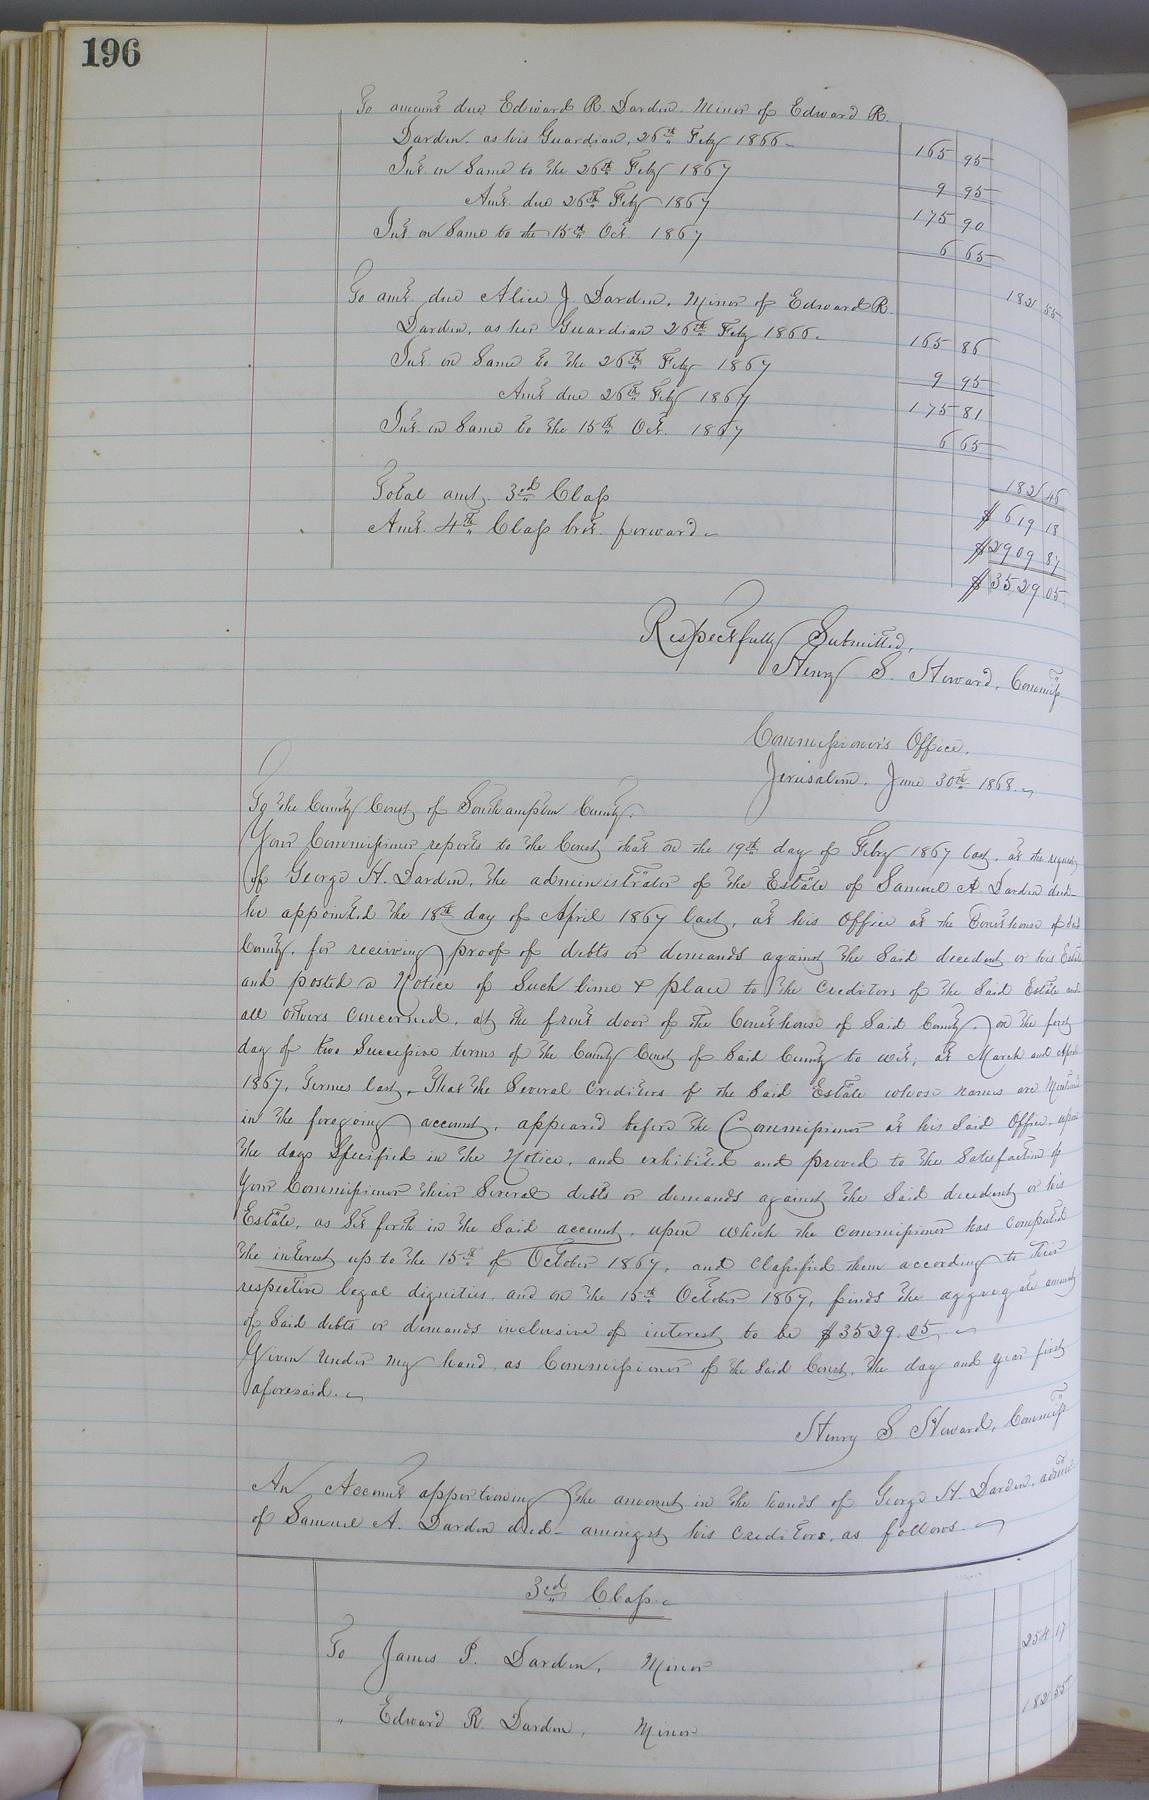 196
To amount due Edward R. Darden. Minor of Edward R.
Darden. as his Guardian, 26th Feby 1866 165 95
Int. on Same to the 26th Feby 1867 9 95
Amt. due 26th Feby 1867 175 90
Int on Same to the 15th Oct. 1867 6 65
182 55
To amt. due Alice J. Darden, Minor of Edward R.
Darden, as her Guardian 26th Feby 1866. 165 86
Int. on Same to the 26th Feby 1867 9 95
Amt due 26th Feby 1867 175 81
Int. on Same to the 15th Oct. 1867 6 65
182 46
Total amt. 3rd Class $619 18
Amt. 4th Class brot. forward $2909 87
$3529 05
Respectfully Submitted,
Henry S. Howard, Commiss.
Commissioner's Office.
Jerusalem, June 30th 1868.
To the County Court of Southampton County.
Your Commissioner reports to the Court that on the 19th day of Feby 1867 last, at the request
of George H. Darden, the administrator of the Estate of Samuel A. Darden decd
he appointed the 18th day of April 1867 last, at his Office at the Courthouse of said
County, for receiving proof of debts or demands against the Said decedent or his Estate
and posted a Notice of Such time & place to the Creditors of the Said Estate and
all others concerned, at the front door of the Courthouse of Said County, on the first
day of two Successive terms of the County Court of Said County to wit; at March and April
1867, Termes last, That the Several Creditors of the Said Estate whose names are Mentioned
in the foregoing account, appeared before the Commissioner at his Said Office,
the day Specified in the Notice, and exhibited and proved to the Satisfaction of
Your Commissioner their Several debts or demands against the Said decedent or his
Estate, as Set forth in the Said account, upon which the Commissioner has computed
the interest up to the 15th of October 1867, and Classified them according to their
respective legal dignities, and on the 15th October 1867, finds the aggregate amount
of Said debts or demands inclusive of interest to be $3529.05.
Given Under my hand as Commissioner of the Said Court, the day and year first
aforesaid.
Henry S. Howard, Commiss
An Account apportioning the amount in the hands of George H. Darden, admr
of Samuel A. Darden decd amongst his creditors, as follows
3rd Class
To James P. Darden, Minor 254 17
" Edward R Darden, Minor 182 55